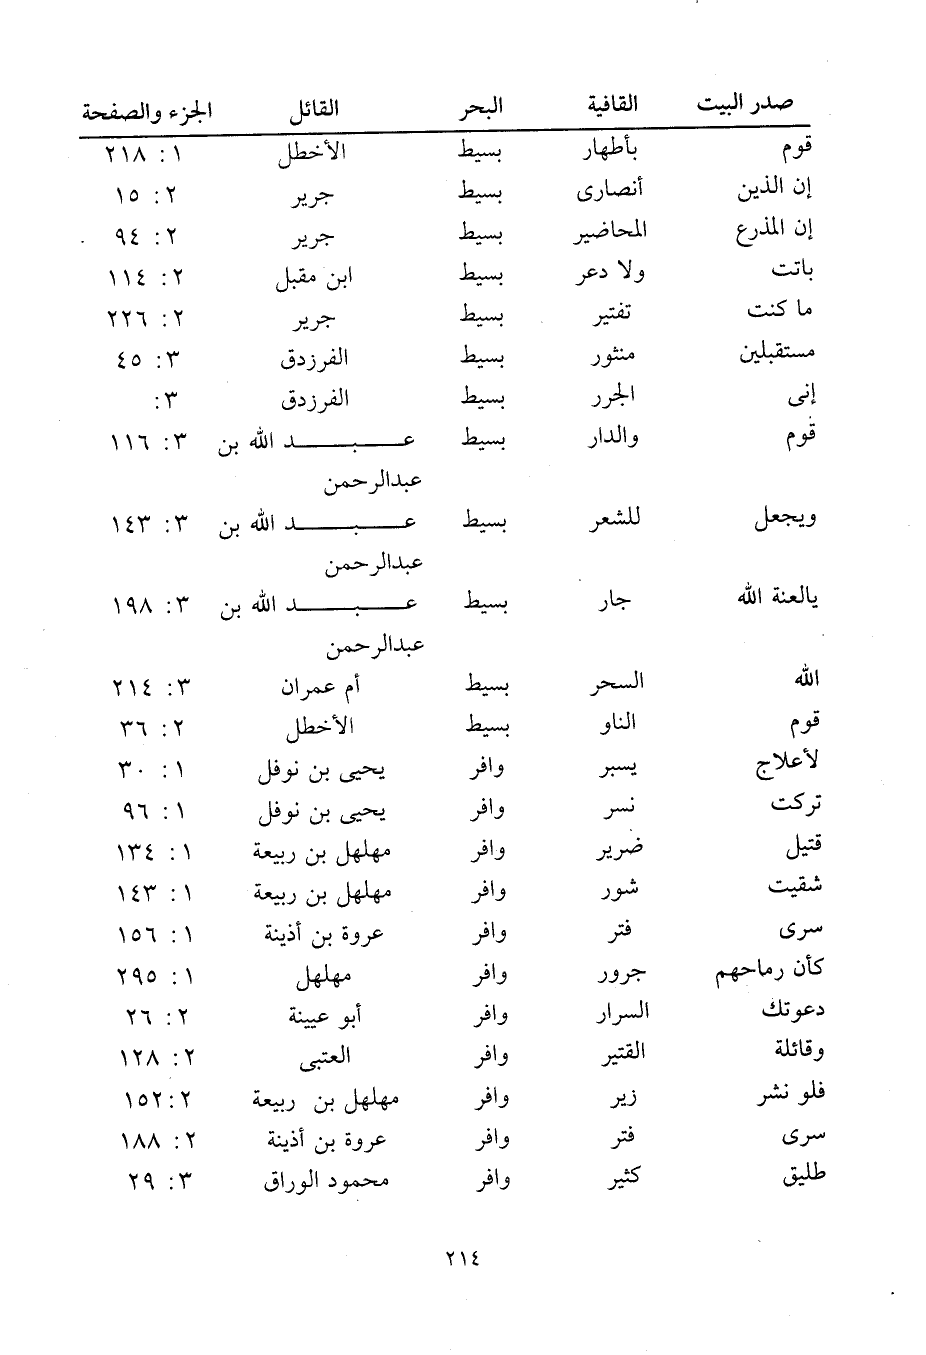 صدر البيت القافية البحر القائل الجزء والصفحة
قوم بأطهار بسيط الأخطل ١: ٢١٨
إن الذين أنصارى بسيط جرير ٢: ١٥
إن المذرع المحاضير بسيط جرير ٢: ٩٤
باتت ولا دعر بسيط ابن مقبل ٢: ١١٤
ما كنت تفتير بسيط جرير ٢: ٢٢٦
مستقبلين منثور بسيط الفرزدق ٣: ٤٥
إنى الجرر بسيط الفرزدق ٣:
قوم والدار بسيط عبد الله بن ٣: ١١٦
عبدالرحمن
ويجعل للشعر بسيط عبد الله بن ٣: ١٤٣
عبدالرحمن
يالعنة الله جار بسيط عبد الله بن ٣: ١٩٨
عبدالرحمن
الله السحر بسيط أم عمران ٣: ٢١٤
قوم الناو بسيط الأخطل ٢: ٣٦
لأعلاج يسبر وافر يحيى بن نوفل ١: ٣٠
تركت نسر وافر يحيى بن نوفل ١: ٩٦
قتيل ضرير وافر مهلهل بن ربيعة ١: ١٣٤
شقيت شور وافر مهلهل بن ربيعة ١: ١٤٣
سرى فتر وافر عروة بن أذينة ١: ١٥٦
كأن رماحهم جرور وافر مهلهل ١: ٢٩٥
دعوتك السرار وافر أبو عيينة ٢: ٢٦
وقائلة القتير وافر العتبى ٢: ١٢٨
فلو نشر زير وافر مهلهل بن ربيعة ٢: ١٥٢
سرى فتر وافر عروة بن أذينة ٢: ١٨٨
طليق كثير وافر محمود الوراق ٣: ٢٩
٢١٤